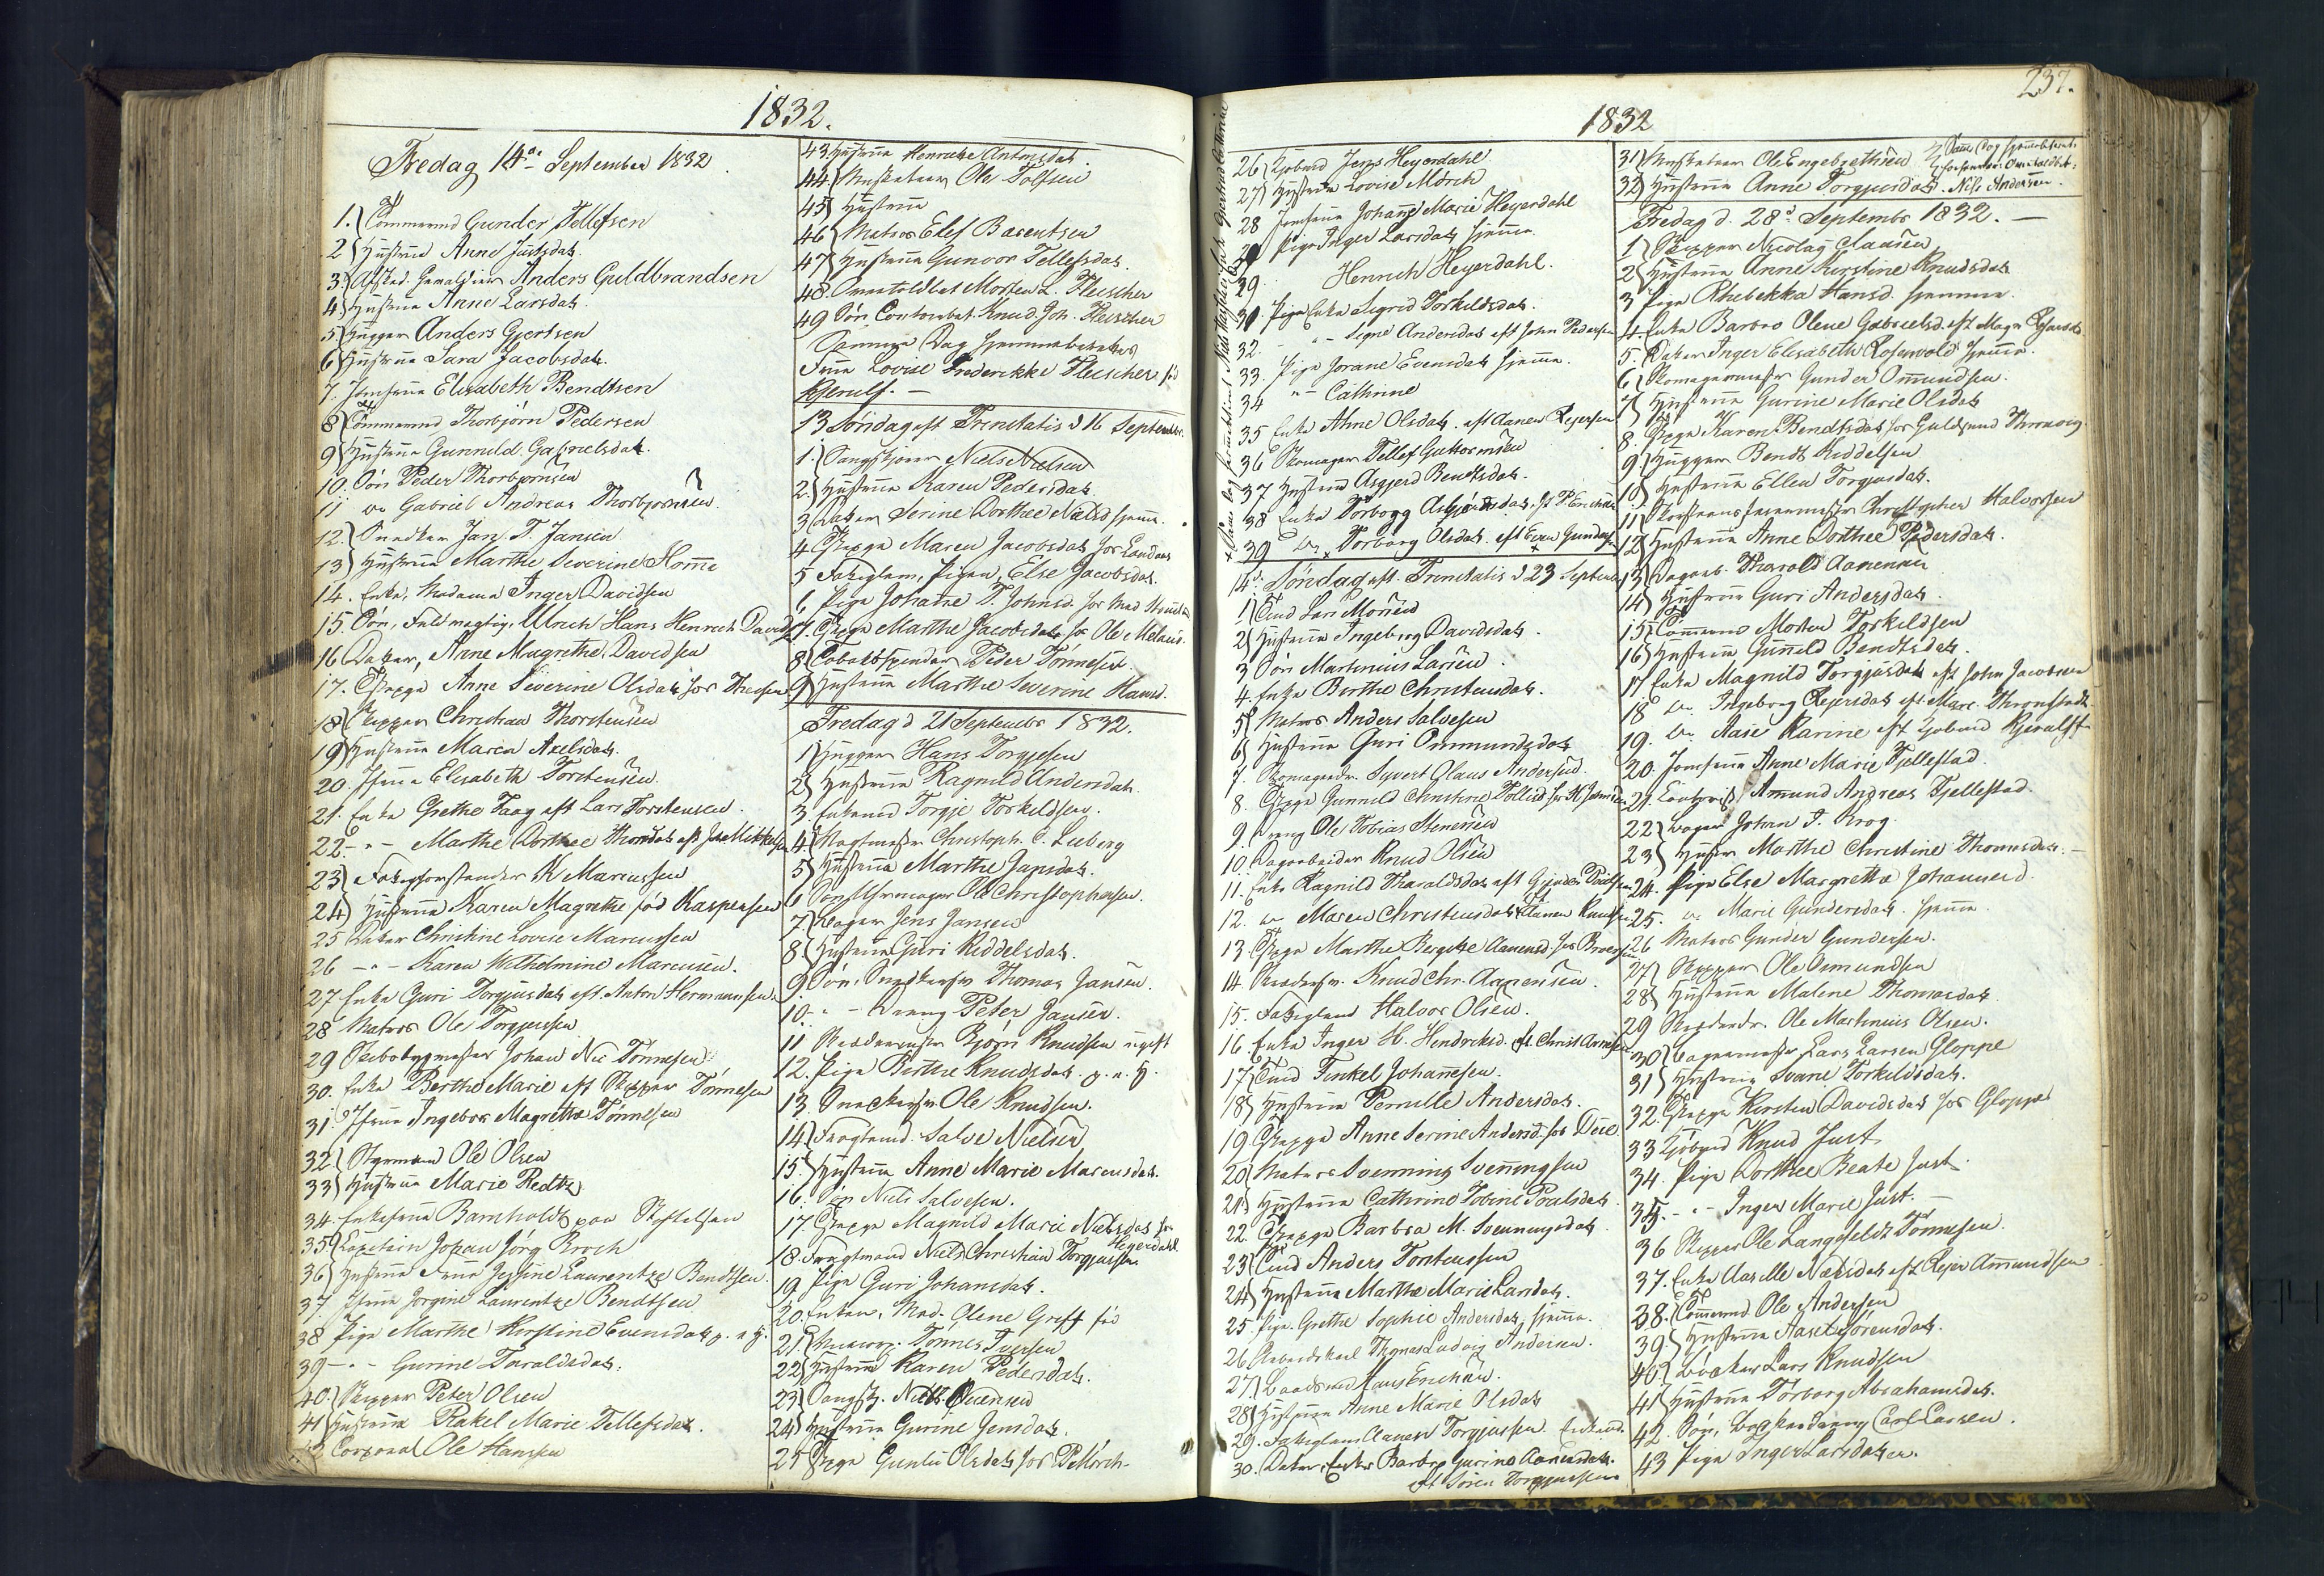 1832.
Fredag 14de September 1832
1. Tømmermd Gunder Tellefsen
2 Hustrue Anne Juulsdatr.
3. Afsked. Anders Guldbrandsen
4 Hustrue Anne Larsdatr.
5 Hugger Anders Gjertsen
6 Hustrue Sara Jacobsdatr.
7. Jomfrue Elisabeth Bendtsen
8 Tømmermd Thorbjørn Pedersen
9 Hustrue Gunnild Gabrielsdatr.
10. Søn Peder Thorbjørnsen
11 do Gabriel Andreas Thorbjørnsen
12. Snedker Janj. T. Jansen
13 Hustrue Marthe Severine Homme
14. Enke, Madame Inger Davidsen
15. Søn, Fuldmægtig, Ulrich Hans Henrich Davidsen
16 Datter, Anne Magrethe Davidsen
17. Pige Anne Severine Olsdatr hos Thersen
18 Skipper Christian Thorstensen
19 Hustrue Maren Axelsdatr.
20. Jfrue Elisabeth Torstensen
21. Enke Grethe Faag eft Lars Torstensen.
22 - " - Marthe Dorthee Thomdatr eft Mikkelsen
23 Fattigforstander N Marcussen
24 Hustrue Karen Magrethe fød Kaspersen
25 Datter Christine Lovise Marcussen
26 - " - Karen Wilhelmine Marcussen.
27 Enke Guri Torgjusdatr eft. Anton Hermansen
28 Matros Ole Torgjersen
29 Skibsbygmester Johan Nic Tønnesen
30. Enke Berthe Marie eft Skipper Tønnesen
31. Jfrue Ingebor Magrethe Tønnesen
32. Styrmand Ole Olsen
33 Hustrue Marie Redtz
34. Enkefrue Barnholdt paa
35. Capitain Johan Jørg Kroch
36 Hustrue Frue Jessine Laurentze Bendtsen.
37 Jfrue Jorgine Laurentze Bendtsen
38 Pige Marthe Kirstine Evensdatr p. a. H.
39 - " - Gurine Taraldsdatr.
40. Skipper Peter Olsen
41 Hustrue Rakel Marie Tellefsdatr.
42 Corporal Ole Hanssen
43. Hustrue Henrikke Antonsdatr.
44. Musketeer Ole Tolfsen
45 Hustrue
46 Matros Elef Barentsen
47 Hustrue Gunvor Tellefsdatr.
48. Overtoldbet Morten L. Fleischer
49 Søn Contoirbet. Knud Joh. Fleischer
Samme Dag hjemmeberettet
Frue Lovise Frederikke Fleischer fød
Kjerulf. -
13 Søndag eft Trinitatis d 16 September.
1. Sangskjører Niels Nielsen
2. Hustrue Karen Pedersdatr.
3 Datter Serine Dorthee Nielsd hjeme.
4 Pige Maren Jacobsdatr hos Landaas
5 Fattiglem, Pigen, Else Jacobsdatr.
6 Pige Johanne T. Johnsd. hos Mad
7. Pige Marthe Jacobsdatr hos Ole Melaus.
8 Tobakspinder Peder Tønnesen.
9 Hustrue Marthe Severine Hansd.
Fredag d 21 September 1832.
1 Hugger Hans Torgjesen
2 Hustrue Ragnild Andersdatr
3. Enkemd Torgje Torkildsen.
4 Vagtmester Christoph. C. Lieberg
5 Hustrue Marthe Jansdatr.
6 Søn Uhrmager Ole Christophersen.
7 Bager Jens Jansen
8 Hustrue Guri Keddelsdatr.
9 Søn, Snedkersv Thomas Jansen.
10 - " - Dreng Peter Jansen.
11 Skræddermester Bjørn Knudsen ugift
12. Pige Birthe Knudsdatr. p. a. H.
13 Snedkersv Ole Knudsen.
14 Fragtmd. Salve Nielsen
15. Hustrue Anne Marie Marcusdatr.
16. Søn Niels Salvesen.
17. Pige Magnild Marie Nielsdatr hos
Heyerdahl
18. Fragtmand Niels Christian Torgjusen
19 Pige Guri Johansdatr.
20. Enken, Mad. Olene Greff fød
21. Tønnes Iversen
22 Hustrue Karen Pedersdatr.
23 Sangskj. Niels Svensen
24 Hustrue Gurine Jensdatr.
25 Pige Gunlu Olsdatr hos P Mørch

237.
1832
26 Kjøbmd Jens Heyerdahl
27 Hustrue Lovise Mørch
28 Jomfrue Johanne Marie Heyerdahl
Pige Inger Larsdatr hjemme
29. Henrich Heyerdahl.
Pige Enke Segrid Torkildsdatr.
32. - " - Signe Andersdatr eft John Pedersen
33. Pige Jorane Evensdatr hjeme.
34 " - Cathrine
35 Enke Anne Olsdatr. eft Aanen Rejersen
36 Skomager Tellef Guttormsen
37 Hustrue Asgjerd Bendtsdatr.
38 Enke Torbogg Asbjørnsdatr. eft P. Erichsen
39 do Torborg Olsdatr. eft Even Gundersen
14de Søndag eft. Trinitatis d 23 Septemb
1 Tmd Lars Monsen
2 Hustrue Ingeborg Davidsdatr.
3 Søn Martinius Larsen.
4. Enke Birthe Christensdatr.
5 Matros Anders Salvesen
6 Hustrue Guri Ommundsdatr
7. Skomagerdr. Syvert Olaus Andersen.
8. Pige Gunnild Christine
9. Dreng Ole Tobias Stenersen
10. Dagarbeider Knud Olsen
11. Enke Ragnild Haraldsdatr eft Gjeruls
12. do Maren Christensdatr Aanen Knudsen
13 Pige Marthe Birgitte Aanensd. hos
14 Skrædersv. Knud Chr. Aanensen.
15. Fattiglem Halvor Olsen.
16. Enke Inger H. Hendriksd. eft Christ Arnesen
17 Tmd Finkel Johannesen.
18 Hustrue Pernille Andersdatr.
19 Pige Anne Serine Andersd. hos Due
20 Matros Svenning Svenningsen
21 Hustrue Cathrine Tobine Poulsdatr
22. Pige Barbra M. Svenningsdatr
23 Tmd Anders Torstensen
24 Hustrue Marthe Marie Larsdatr.
25 Pige Grethe Sophie Andersdatr hjemme.
26 Arbeidskarl Thomas Ludvig Andersen.
27 Hans Erichsen.
28 Hustrue Anne Marie Olsdatr
29. Fattiglem Aanen Torgjussen. Enkemd
30. Datter, Enke Barbro Gurine Aanensdatr.
eft Søren Torgjussen
31 Musketeer Ole Engebrethsen
Samme Dag hjemmeberettet
32 Hustrue Anne Torgjersdatr. Niels Andersen.
Fredag d. 28de September 1832. -
1 Skipper Nicolay Clausen
2 Hustrue Anne Kirstine Knudsdatr
3 Pige Rhebekka Hansd. hjemme
4. Enke Barbro Olene Gabrielsd. eft Magn
5. Datter Inger Elisabeth Rosenvold hjeme.
6 Skomagermester Gunder Ommundsen.
7 Hustrue Gurine Marie Olsdatr
8. Pige Karen Bendtsdatr hos Guldsmed
9. Hugger Bendt Keddelsen
10 Hustrue Ellen Torgjusdatr.
11 Christopher Halvorsen
12 Hustrue Anne Dorthee Pedersdatr.
13 Dagarb. Tharald Aanensen
14 Hustrue Guri Andersdatr.
15 Tømmermd Morten Torkildsen
16 Hustrue Gunnild Bendtsdatr.
17 Enke Magnild Torgjusdatr eft John Jacobsen
18 do Ingeborg Rejersdatr eft. Marc. Thronstadt
19. do Aase Karine eft Kjøbmd Kjerulff
20. Jomfrue Anne Marie Fjellestad.
21. Amund Andreas Fjellestad.
22 Bager Johan T. Krog.
23 Hustr Marthe Christine Thomasdatr. -
24. Pige Else Margrethe Johannesd.
25. do Marie Gundersdatr. hjeme.
26 Matros Gunder Gundersen.
27 Skipper Ole Osmundsen
28 Hustrue Malene Thomasdatr
29 Skræderdr. Ole Martinius Olsen.
30 Bagermester Lars Larsen Gloppe
31 Hustrue Svane Torkildsdatr.
32. Pige Kirsten Davidsdatr hos Gloppe
33 Kjøbmd Knud Just
34. Pige Dorthee Beate Just.
35. - " - Inger Marie Just. -
36 Skipper Ole Langsfeldt Tønnesen.
37. Enke Aaselle Nielsdatr eft Rejer Amundsen
38. Tømmermd Ole Andersen
39 Hustrue Aaset Sørensdatr.
40. Lars Knudsen
41 Hustrue Torborg Abrahamsdatr.
42. Søn, Carl Larsen.
43 Pige Inger Larsdatr